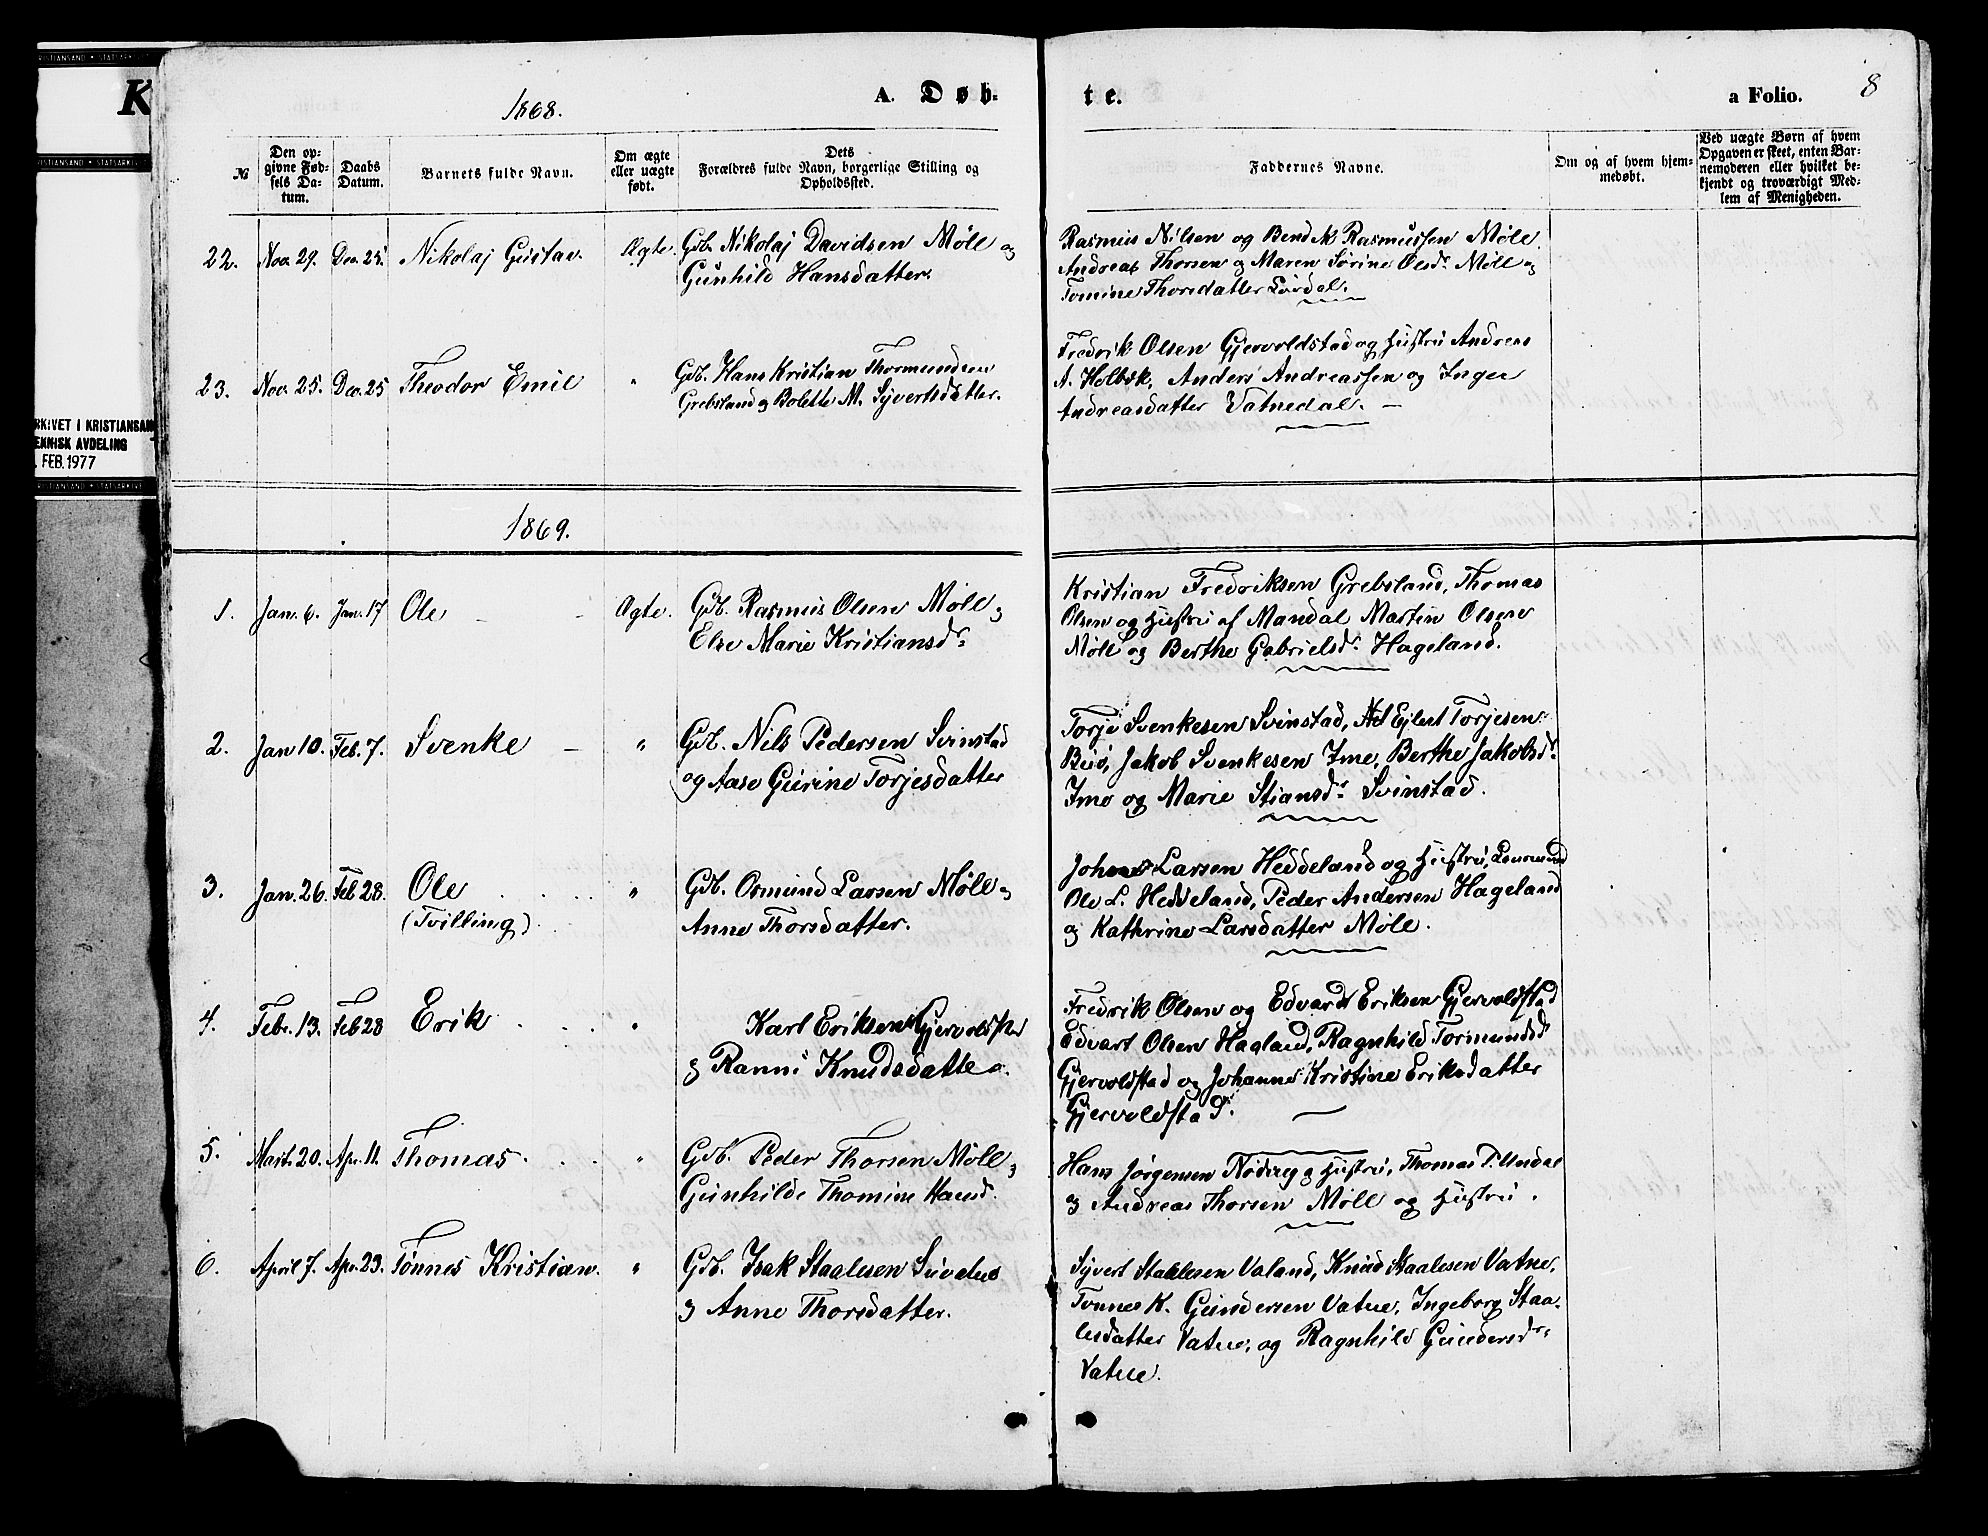 K
RKIVET I KRISTIANSAN
EKNISK AVDELING
FEB. 1977
1868.
A. Døb-
te.
a Folio.
8
№
Den op-
givne Fød-
sels Da-
tum.
Daabs
Datum.
Barnets fulde Navn.
Om ægte
eller uægte
født.
Dets
Forældres fulde Navn, borgerlige Stilling og
Opholdssted.
Faddernes Navne.
Om og af hvem hjem-
medøbt.
Ved uægte Børn af hvem
Opgaven er skeet, enten Bar-
nemoderen eller hvilket be-
kjendt og troværdigt Med-
lem af Menigheden.
22. Nov. 29. Dec. 25. Nikolaj Gustav. Ægte. Gdb. Nikolaj Davidsen Møll og
Gunhild Hansdatter.
Rasmus Nilsen og Bend. M. Rasmussen Møll.
Andreas Thorsen og Maren Sørine Olsdr. Møll og
Tomine Thorsdatter Lørdal.
23. Nov. 25. Dec. 25 Theodor Emil " Gdb. Hans Kristian Thormundsen
Grebsland og Bolette M. Syvertsdatter.
Fredrik Olsen Gjervoldstad og Hustru Andreas
A. Holbek, Anders Andreassen og Inger
Andreasdatter Vatnedal. —
1869.
1. Jan. 6. Jan. 17 Ole Ægte. Gdb. Rasmus Olsen Møll og
Else Marie Kristiansdr.
Kristian Fredriksen Grebsland, Thomas
Olsen og Hustru af Mandal Martin Olsen
Møll og Berthe Gabrielsdr. Hageland.
2. Jan 10. Feb. 7. Svenke — " Gdb. Nils Pedersen Svinstad
og Aase Gurine Torjesdatter
Torje Svenkesen Svinstad, Ejlert Torjesen
Buø, Jakob Svenkesen Ime, Berthe Jakobsdr.
Ime og Marie Stiansdr. Svinstad.
3. Jan. 26. Feb 28. Ole " Gdb. Osmund Larsen Møll og
(Tvilling) Anne Thorsdatter.
Larsen Heddeland og Hustru,
Ole L. Heddeland, Peder Andersen Hageland
og Kathrine Larsdatter Møll.
4. Febr. 13. Feb 28 Erik " Karl Eriksen
og Ranni Knudsdatter.
Fredrik Olsen og Edvard Eriksen Gjervoldstad
Edvart Olsen Hagland, Ragnhild Tormundsd
Gjervoldstad og Johanne Kristine Eriksdatter
Gjervoldstad. —
5. Marts 20. Apr. 11. Thomas. " Gdb. Peder Thorsen Møll og
Gunhilde Thomine Hansd.
Hans Jørgensen og Hustru, Thomas T. Undal
og Andreas Thorsen Møll og Hustru.
6. April 7. Apr. 23. Tønnes Kristian. " Gdb. Isak Staalesen
og Anne Thorsdatter.
Syvert Staalesen Valand, Knud Staalesen Vatne,
Tønnes K. Gundersen Vatne, Ingeborg Staa-
lesdatter Vatne, og Ragnhild Gundersdr.
Vatne.